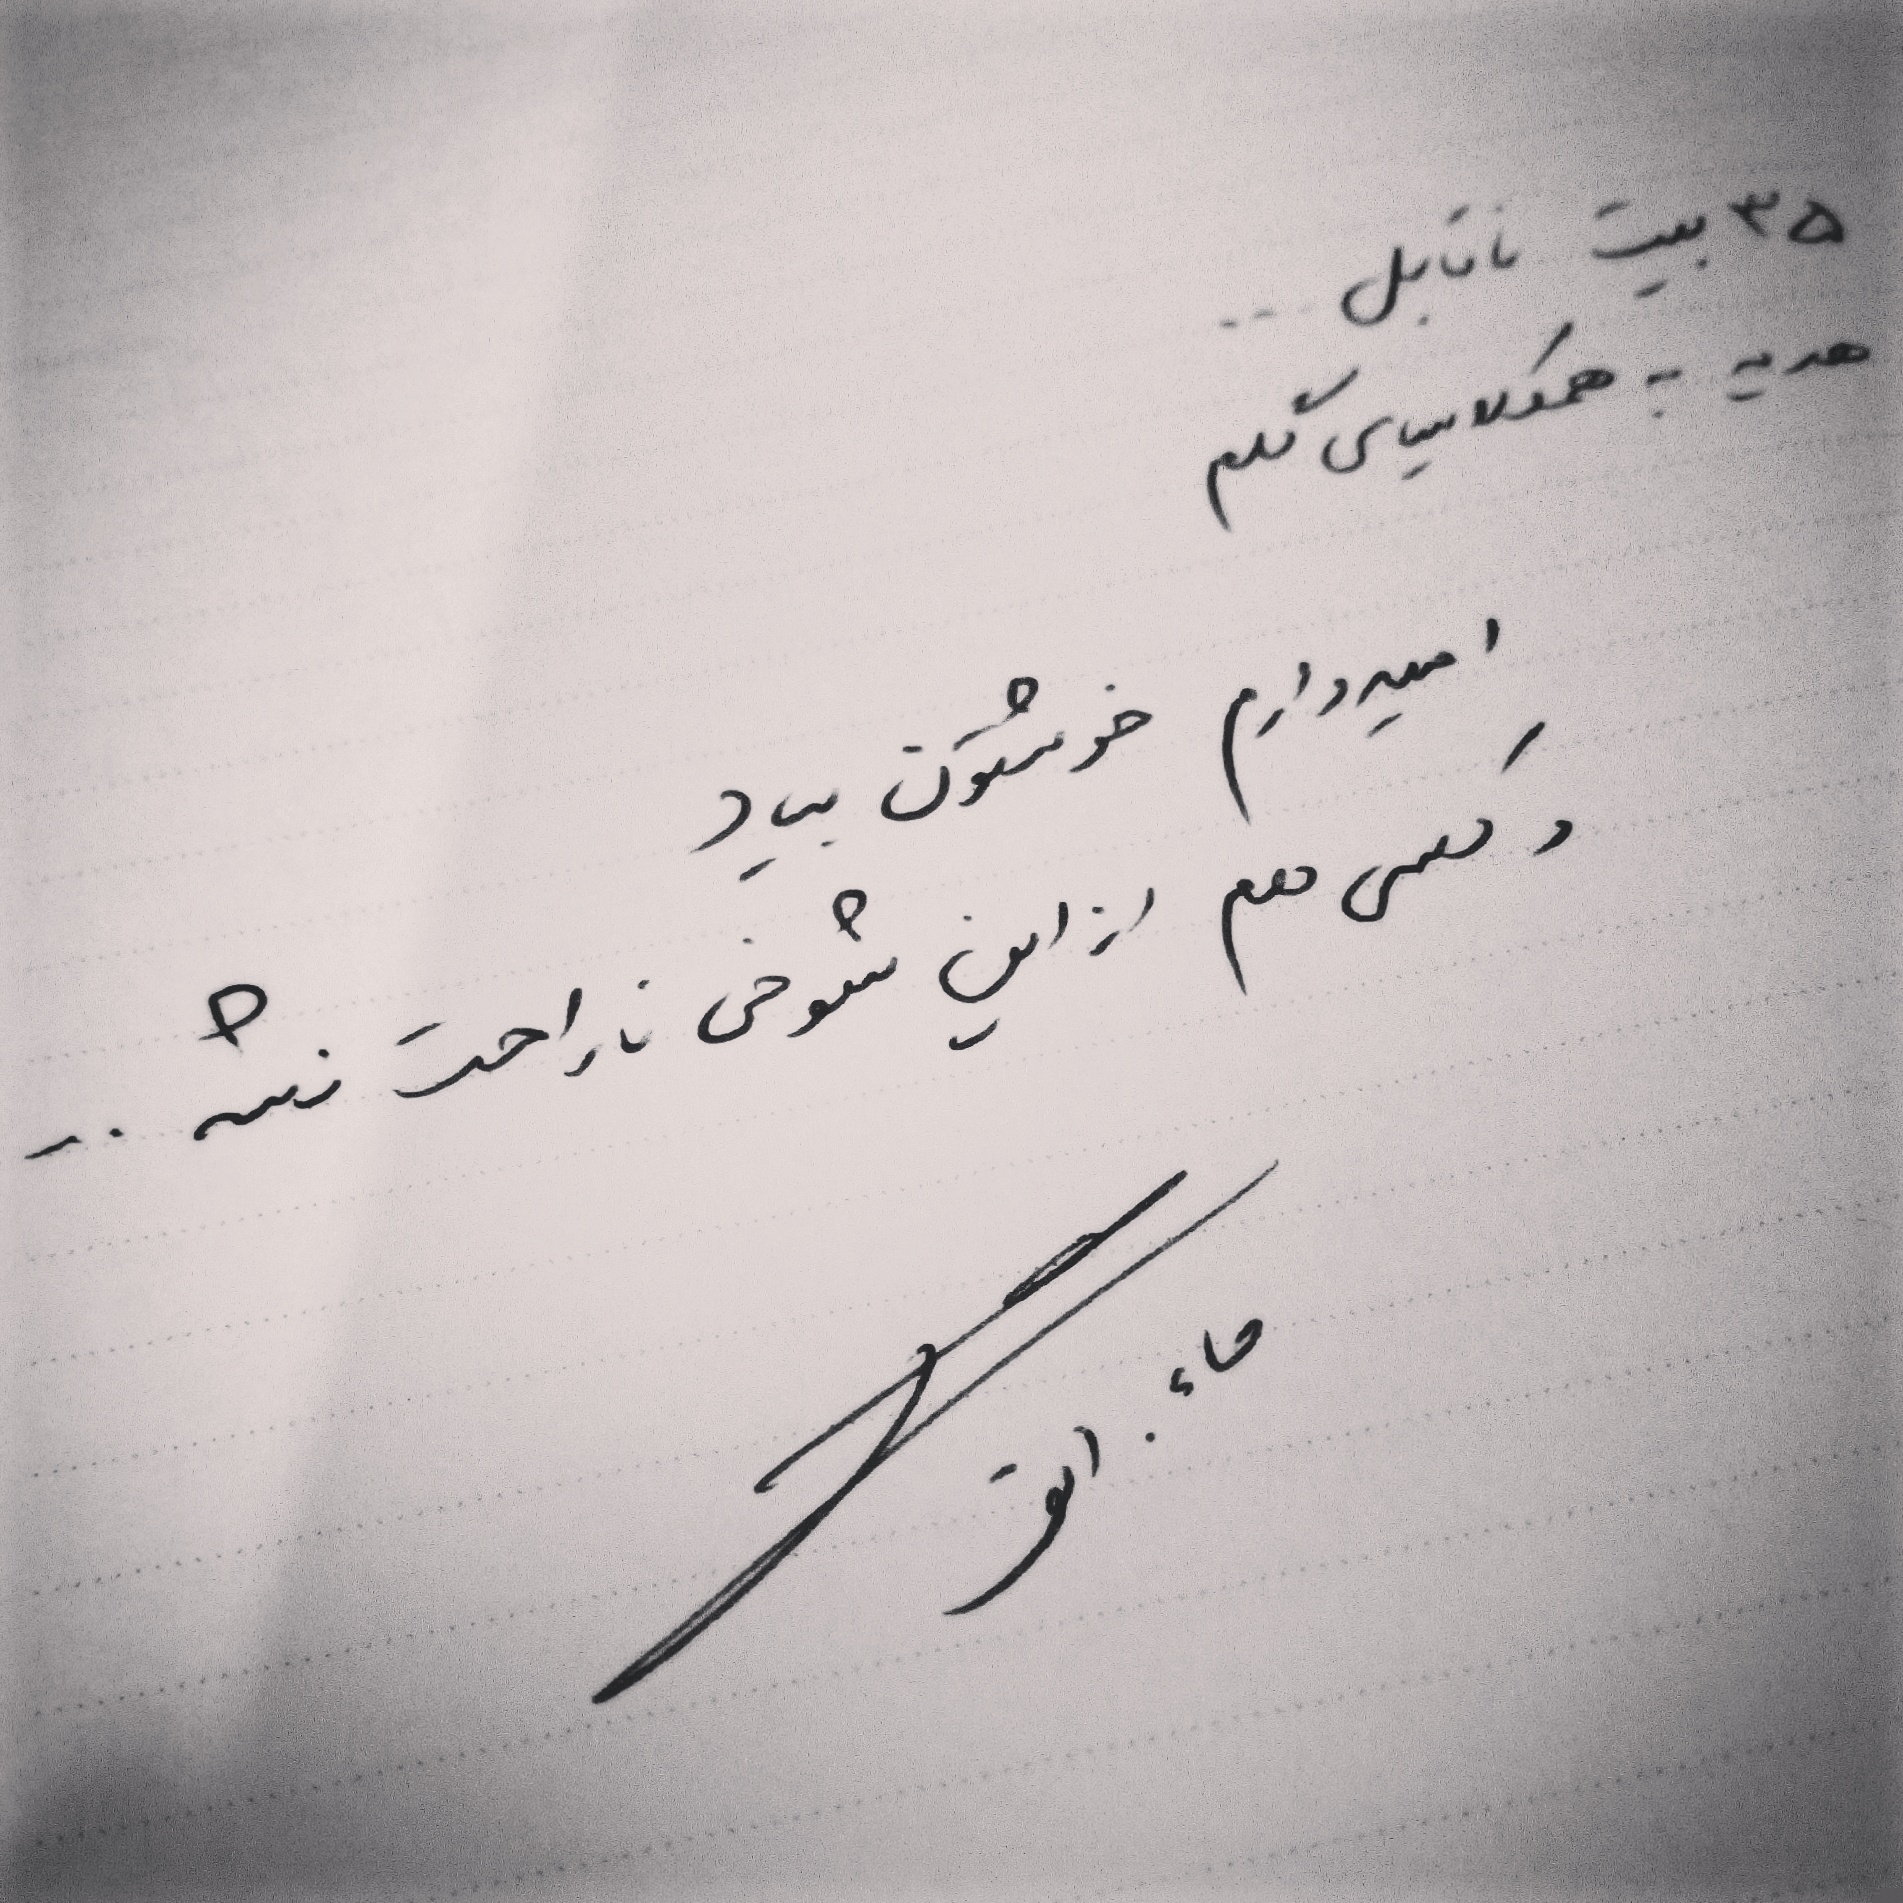 ۳۵ بیت ناقابل ...
هدیه به همکلاسیای گلم
امیدوارم خوشتون بیاد
و کسی هم از این شوخی ناراحت نشه ...